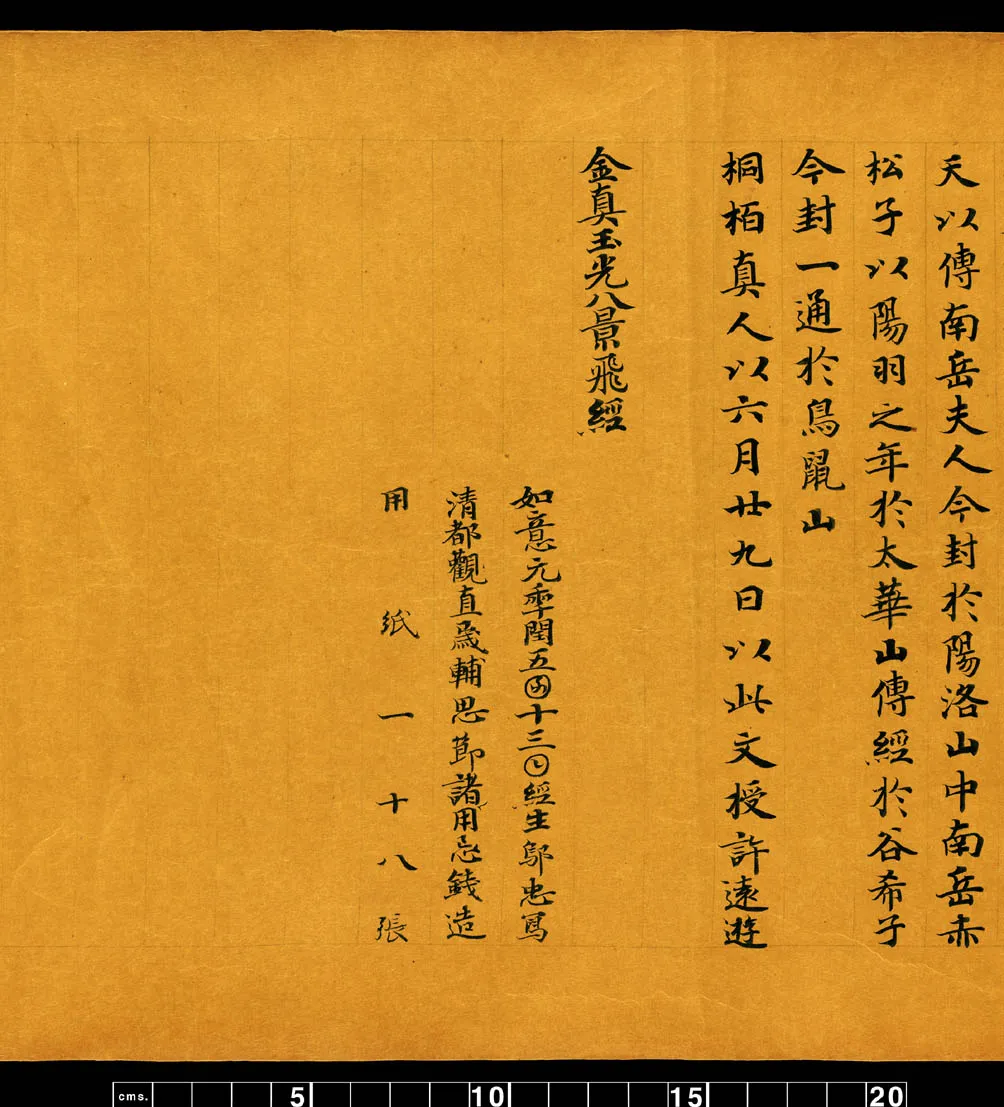 天以傳南岳夫人今封於陽洛山中南岳赤
松子以陽羽之年於太華山傳經於谷希子
今封一通於鳥鼠山
桐栢真人以六月廿九日以此文授許遠遊
金真玉光八景飛經
如意元秊閏五囝十三𡆠經生鄔忠寫
清都觀直歲輔思節諸用忌錢造
用紙一十八張
cms. 5 10 15 20